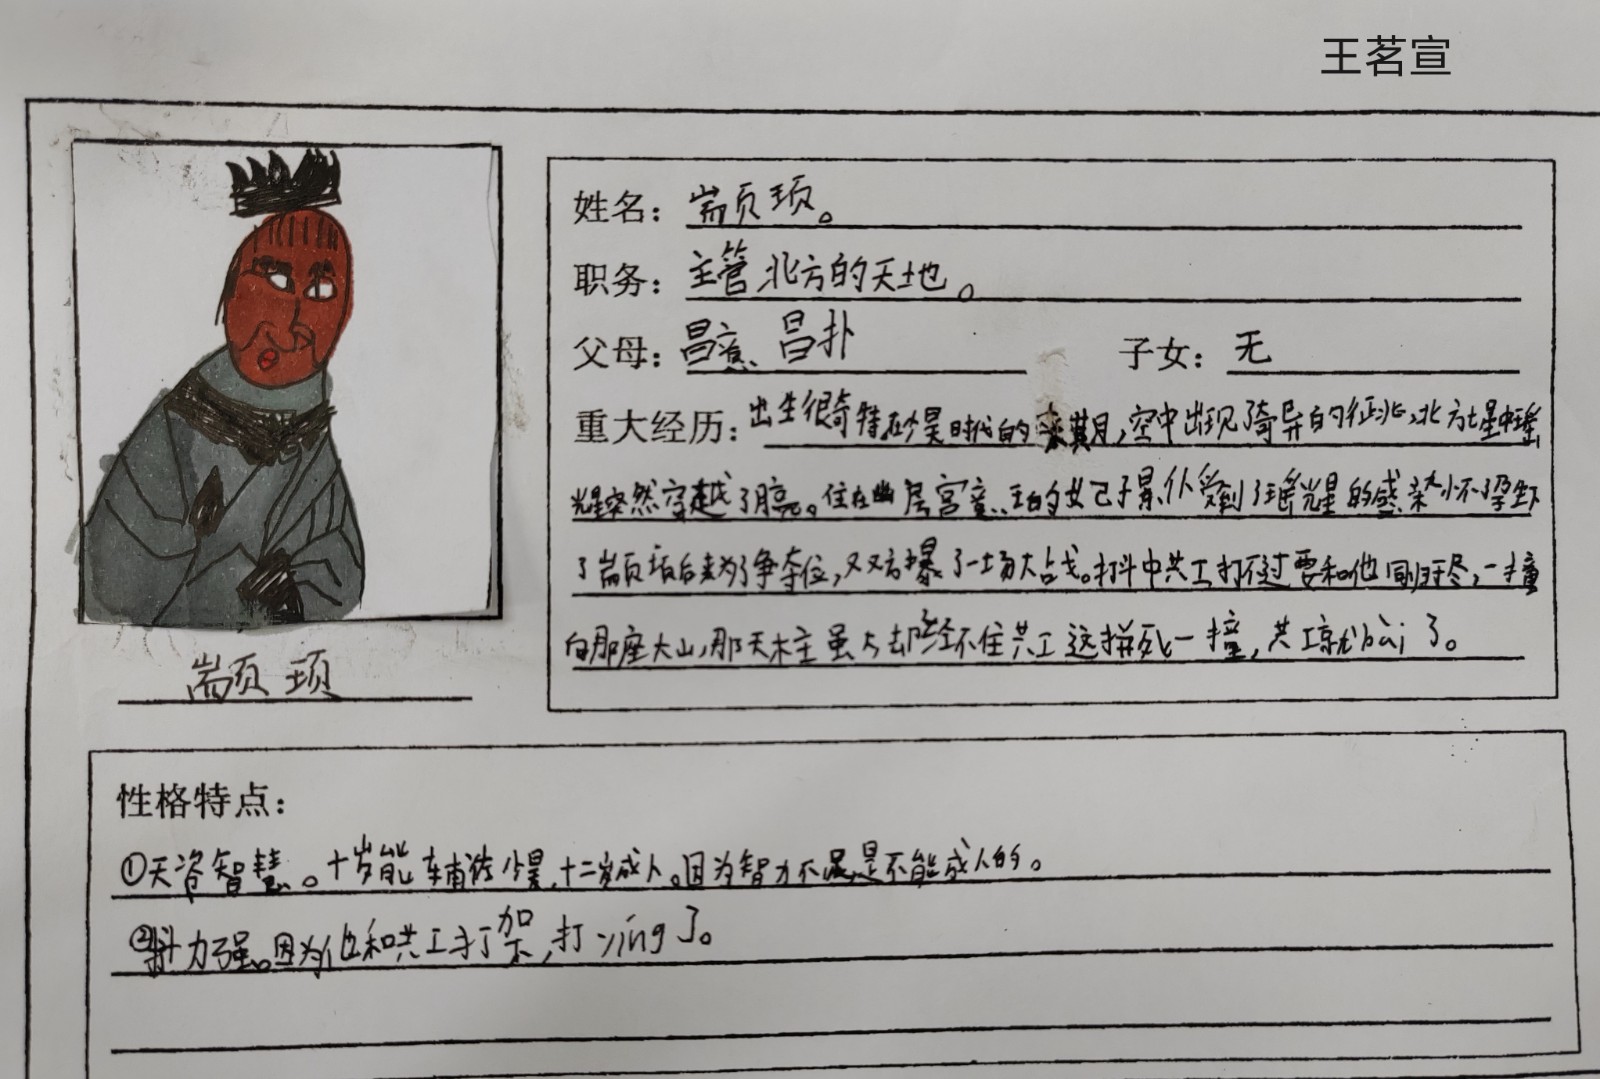 王茗宣
姓名：颛顼。
职务：主管北方的天地。
父母：昌意、昌扑
子女：无
重大经历：出生很奇特在少昊时代的末期，空中出现了奇异的征兆，北方七星中瑶
光星突然穿越了月亮。住在幽房宫意的女己子景仆受到了瑶光星的感染小不孕虾
了颛顼后来为了争夺位，又双方爆了一场大占戈。打斗中共工打不过要和他同归于尽，一撞
向那座大山，那天木主虽占却经不住共工这拼死一撞，共工就bài了。
颛顼
性格特点：
①天资智慧。十岁能辅佐少昊，十二岁成人。因为智力不足是不能成人的。
②斗力强。因为他和共工打架，打yíng了。